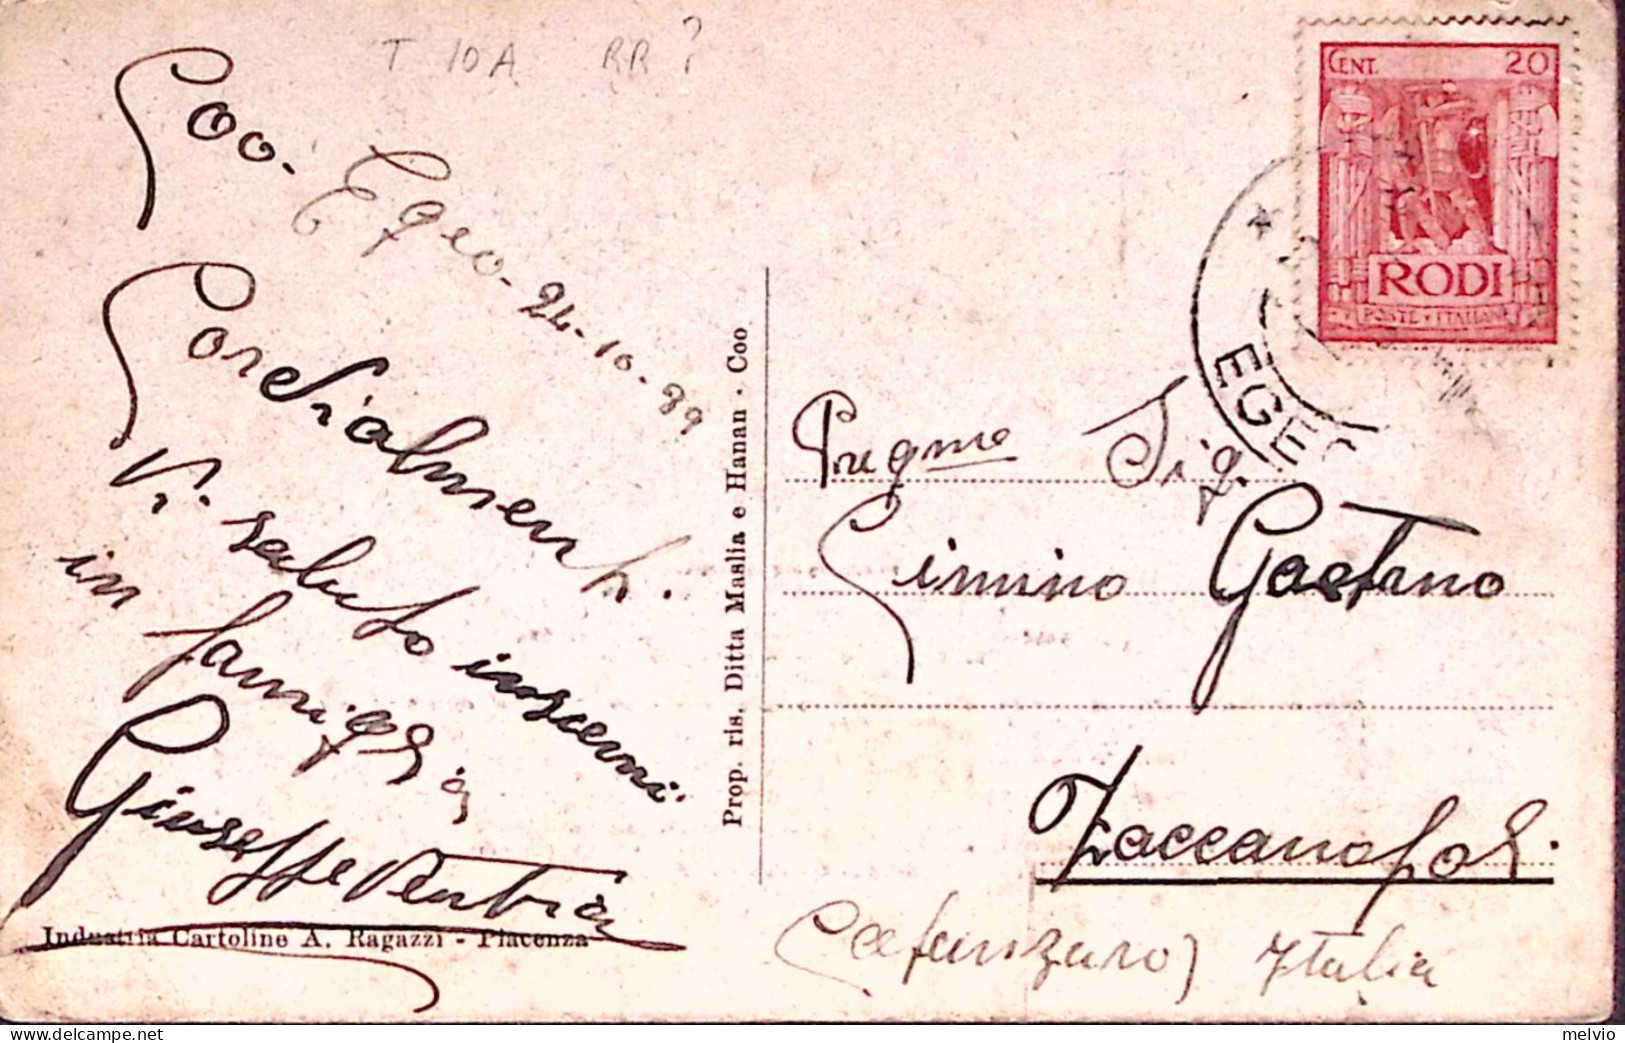 T 10A RR?
Coo-
Egeo- 24-10-39
Cordialmente.
Vi saluto insiemi
in famiglia
Giuseppe
Industria Cartoline A. Ragazzi - Piacenza
Prop. ris. Ditta Maslia e Hanan - Coo
CENT. 20
RODI
POSTE ITALIANE
EGEO
Pregmo Sig.
Cimino Gaetano
Zaccanopoli
(Catanzaro) Italia
melvio